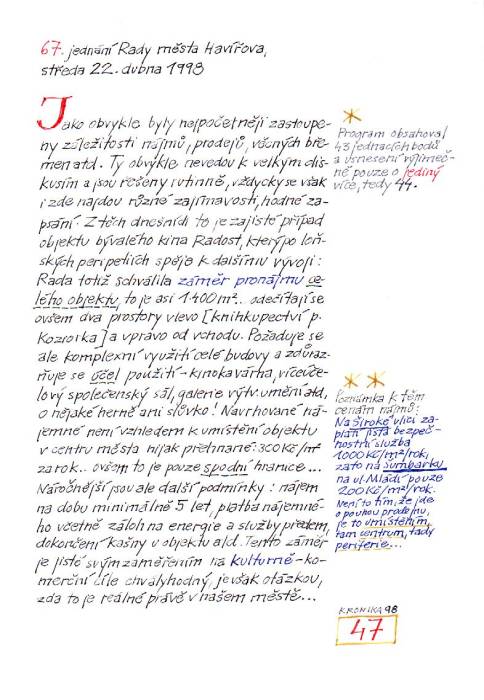 67. jednání Rady města Havířova,
středa 22. dubna 1998
Jako obvykle byly nejpočetněji zastoupe-
ny záležitosti nájmů, prodejů, věcných bře-
men atd. Ty obvykle nevedou k velkým dis-
kusím a jsou řešeny rutinně, vždycky se však
i zde najdou různé zajímavosti, hodné za-
psání. Z těch dnešních to je zajisté případ
objektu bývalého kina Radost, který po loň-
ských peripetiích spěje k dalšímu vývoji:
Rada totiž schválila záměr pronájmu ce-
lého objektu, to je asi 1400 m²... odečítají se
ovšem dva prostory vlevo [knihkupectví p.
Koziorka] a vpravo od vchodu. Požaduje se
ale komplexní využití celé budovy a zdůraz-
ňuje se účel použití - kinokavárna, víceúče-
lový společenský sál, galerie výtv. umění atd,
o nějaké herně ani slůvko! Navrhované ná-
jemné není vzhledem k umístění objektu
v centru města nijak přehnané: 300 Kč/m²
za rok.. ovšem to je pouze spodní hranice...
Náročnější jsou ale další podmínky: nájem
na dobu minimálně 5 let, platba nájemné-
ho včetně záloh na energie a služby předem,
dokončení kašny v objektu atd. Tento záměr
je jistě svým zaměřením na kulturně-ko-
merční cíle chvályhodný, je však otázkou,
zda to je reálné právě v našem městě...
Program obsahoval
43 jednacích bodů
a usnesení výjimeč-
ně pouze o jediný
více, tedy 44.
Poznámka k těm
cenám nájmů:
Na Široké ulici za-
platí jistá bezpeč-
nostní služba
1000 Kč/m²/rok,
zato na Šumbarku
na ul. Mládí pouze
200 Kč/m²/rok.
Není to tím, že jde
o pouhou prodejnu,
je to umístěním,
tam centrum, tady
periferie...
KRONIKA 98
47